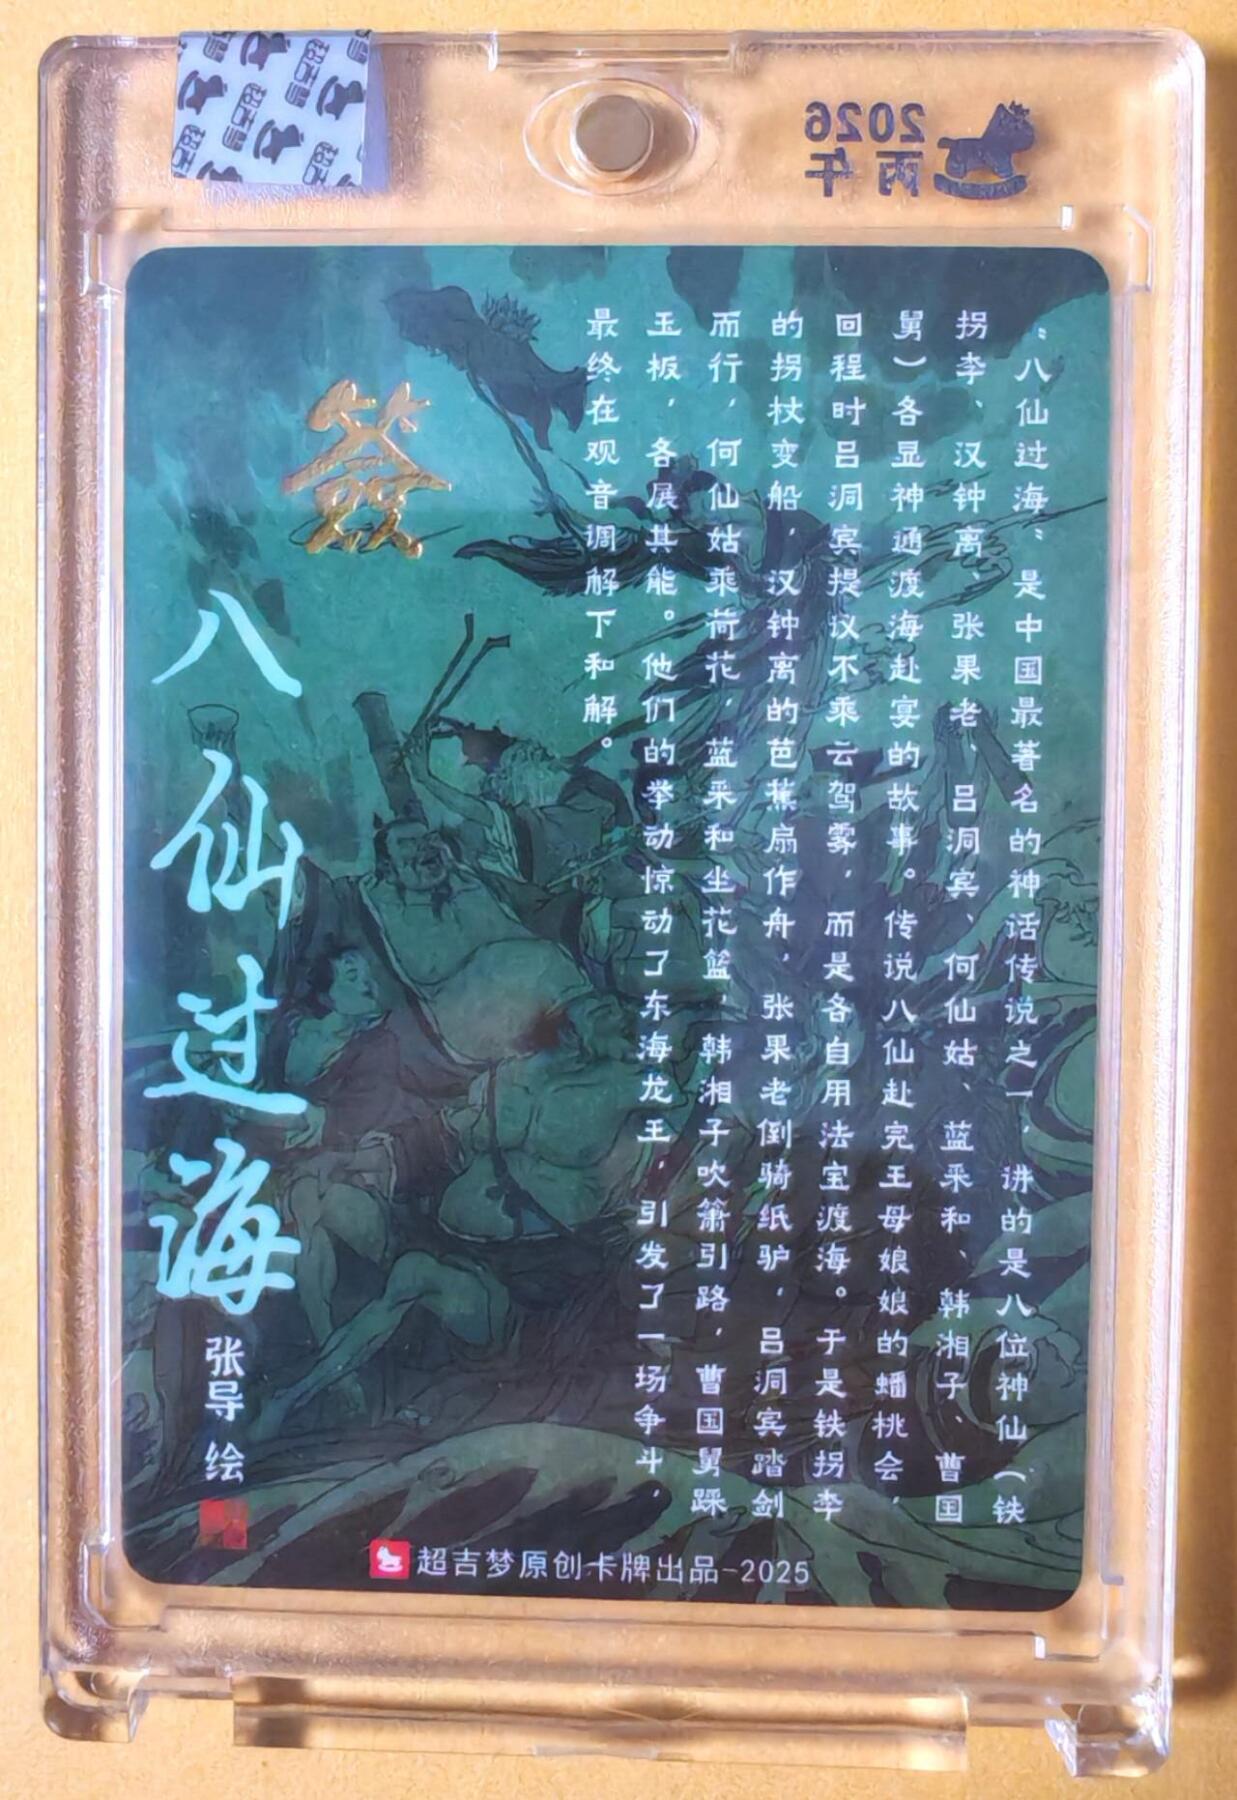 2026
丙午
“八仙过海”是中国最著名的神话传说之一，讲的是八位神仙（铁
拐李、汉钟离、张果老、吕洞宾、何仙姑、蓝采和、韩湘子、曹国
舅）各显神通渡海赴宴的故事。传说八仙赴完王母娘娘的蟠桃会，
回程时吕洞宾提议不乘云驾雾，而是各自用法宝渡海。于是铁拐李
的拐杖变船，汉钟离的芭蕉扇作舟，张果老倒骑纸驴，吕洞宾踏剑
而行，何仙姑乘荷花，蓝采和坐花篮，韩湘子吹箫引路，曹国舅踩
玉板，各展其能。他们的举动惊动了东海龙王，引发了一场争斗，
最终在观音调解下和解。
簽
八仙过海
张导 绘
超吉梦原创卡牌出品-2025